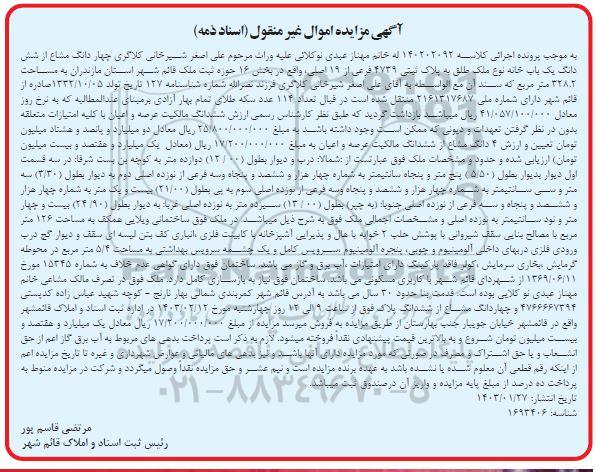 آگهی مزایده اموال غیر منقول (اسناد ذمه)
به موجب پرونده اجرائی کلاسه ۱۴۰۲۰۲۰۹۲ له خانم مهناز عبدی نوکلائی علیه وراث مرحوم علی اصغر شیرخانی کلاگری چهار دانگ مشاع از شش
دانگ یک باب خانه نوع ملک طلق به پلاک ثبتی ۴۷۳۹ فرعی از ۱۹ اصلی، واقع در بخش ۱۶ حوزه ثبت ملک قائم شهر استان مازندران به مساحت
۳۲۸.۲ متر مربع که سند آن مع الواسطه به آقای علی اصغر شیرخانی کلاگری فرزند نصرالله شماره شناسنامه ۱۲۷ تاریخ تولد ۱۳۳۲/۱۰/۰۵ صادره از
قائم شهر دارای شماره ملی ۲۱۶۱۳۱۷۶۸۷ منتقل شده است در قبال تعداد ۱۱۴ عدد سکه طلای تمام بهار آزادی برمبنای عندالمطالبه که به نرخ روز
معادل ۴۱/۰۵۷/۱۰۰/۰۰۰ ریال میباشد بازداشت گردید که طبق نظر کارشناس رسمی ارزش ششدانگ مالکیت عرصه و اعیان با کلیه امتیازات متعلقه
بدون در نظر گرفتن تعهدات و دیونی که ممکن است وجود داشته باشد به مبلغ ۲۵/۸۰۰/۰۰۰/۰۰۰ ریال معادل دو میلیارد و پانصد و هشتاد میلیون
تومان تعیین و ارزش ۴ دانگ مشاع از ششدانگ مالکیت عرصه و اعیان به مبلغ ۱۷/۲۰۰/۰۰۰/۰۰۰ ریال (معادل یک میلیارد و هفتصد و بیست میلیون
تومان) ارزیابی شده و حدود و مشخصات ملک فوق عبارتست از: شمالا: درب و دیوار بطول (۱۲/۰۰) دوازده متر به کوچه بن بست شرقا: در سه قسمت
اول دیوار بدیوار بطول (۵/۵۰) پنج متر و پنجاه سانتیمتر به شماره چهار هزار و ششصد و پنجاه وسه فرعی از نوزده اصلی دوم به دیوار بطول (۳/۳۰) سه
متر و سی سانتیمتر به شماره چهار هزار و ششصد و پنجاه وسه فرعی از نوزده اصلی سوم به پی بطول (۲۱/۰۰) بیست و یک متر به شماره چهار هزار
و ششصد و پنجاه و سه فرعی از نوزده اصلی جنوبا: (به چپر) بطول (۱۳/۰۰) سیزده متر به نوزده اصلی غربا: به دیوار بطول (۲۴/۹۰) بیست و چهار
متر و نود سانتیمتر به نوزده اصلی و مشخصات اجمالی ملک فوق به شرح ذیل میباشد: در ملک فوق ساختمانی ویلایی همکف به مساحت ۱۲۶ متر
مربع با مصالح بنایی سقف شیروانی با پوشش حلب ۲ خوابه با هال و پذیرایی آشپزخانه با کابینت فلزی ،انباری کف بتن لیسه ای سقف و دیوار گچ درب
ورودی فلزی دربهای داخلی آلومینیوم و چوبی، پنجره آلومینیوم سرویس کامل و یک چشمه سرویس بهداشتی به مساحت ۵/۴ متر مربع در محوطه
گرمایش ،بخاری سرمایش ،کولر فاقد پارکینگ دارای امتیازات ،آب برق و گاز می باشد. ساختمان فوق دارای گواهی عدم خلاف به شماره ۱۵۳۴۵ مورخ
۱۳۶۹/۰۶/۱۱ از شهرداری قائم شهر با کاربری مسکونی می باشد. ساختمان فوق نیاز به بازسازی کامل دارد. ملک فوق در تصرف مالک مشاعی خانم
مهناز عبدی نو کلایی بوده است. قدمت بنا حدود ۳۰ سال می باشد به آدرس قائم شهر کمربندی شمالی بهار نارنج - کوچه شهید عباس زاده کدپستی
۴۷۶۶۶۶۷۳۹۴ و چهاردانگ مشاع از ششدانگ پلاک فوق از ساعت ۹ الی ۱۲ روز چهارشنبه مورخ ۱۴۰۳/۰۲/۱۲ در اداره ثبت اسناد و املاک قائمشهر
واقع در قائمشهر خیابان جویبار جنب بهارستان از طریق مزایده به فروش میرسد مزایده از مبلغ ۱۷/۲۰۰/۰۰۰/۰۰۰ ریال معادل یک میلیارد و هفتصد و
بیست میلیون تومان شروع و به بالاترین قیمت پیشنهادی نقدا فروخته میشود. لازم به ذکر است پرداخت بدهی های مربوطه به آب برق گاز اعم از حق
انشعاب و یا حق اشتراک و مصرف در صورتی که مورد مزایده دارای آنها باشد و نیز بدهی های مالیاتی و عوارض شهرداری و غیره تا تاریخ مزایده اعم
از اینکه رقم قطعی آن معلوم شده یا نشده باشد به عهده برنده مزایده است و نیم عشر و حق مزایده نقدا وصول میگردد و شرکت در مزایده منوط به
پرداخت ده درصد از مبلغ پایه مزایده و واریز آن درصندوق ثبت میباشد.
تاریخ انتشار: ۱۴۰۳/۰۱/۲۷
شناسه: ۱۶۹۳۴۰۶
مرتضی قاسم پور
رئیس ثبت اسناد و املاک قائم شهر
۰۲۱-۸۸۳۴۹۶۷۰-۵